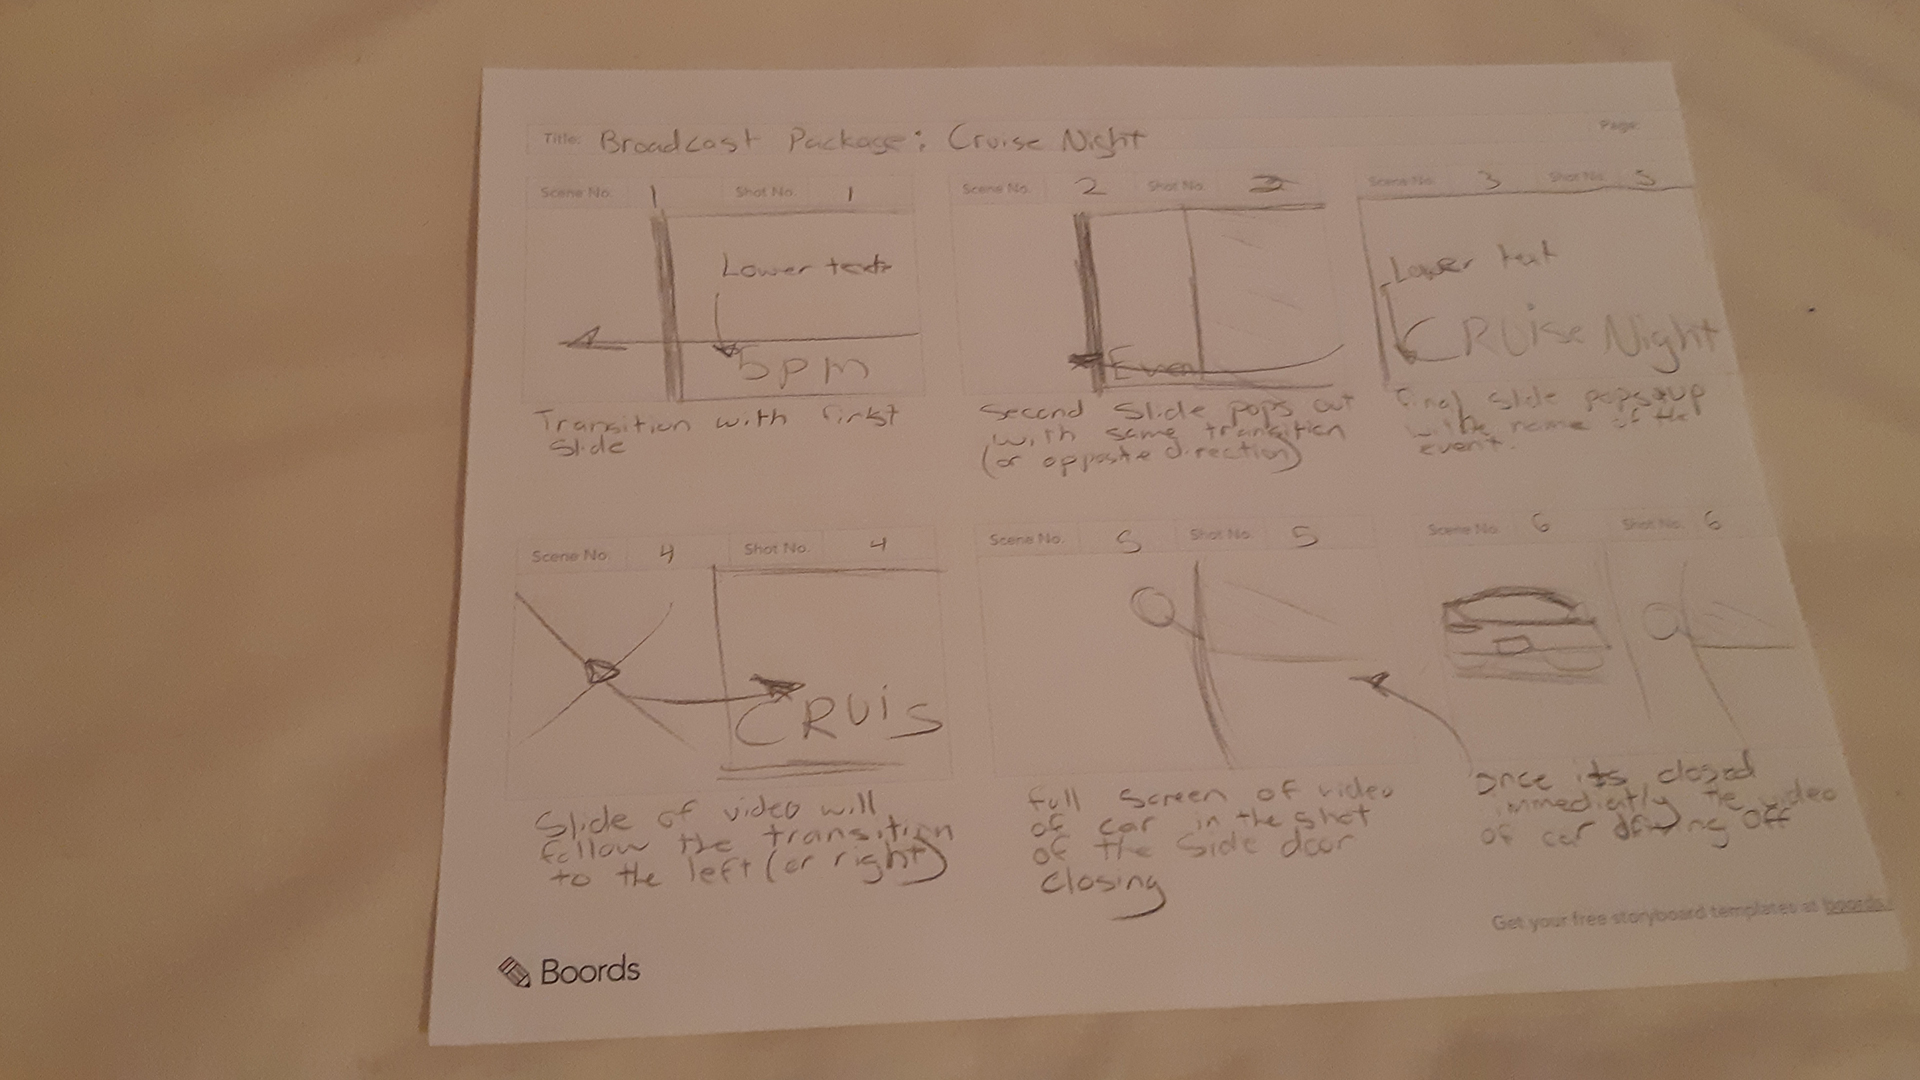 Title: Broadcast Package: Cruise Night
Page:
Scene No. 1 Shot No. 1
Lower text
5pm
Transition with first
slide
Scene No. 2 Shot No. 2
Even
Second slide pops out
with same transition
(or opposite direction)
Scene No. 3 Shot No. 3
Lower text
CRUise Night
final slide pops up
with the name of the
event.
Scene No. 4 Shot No. 4
CRUiS
Slide of video will
follow the transition
to the left (or right)
Scene No. 5 Shot No. 5
full screen of video
of car in the shot
of the side door
closing
Scene No. 6 Shot No. 6
once its closed
immediatly the video
of car driving off
Get your free storyboard templates at boords.
Boords